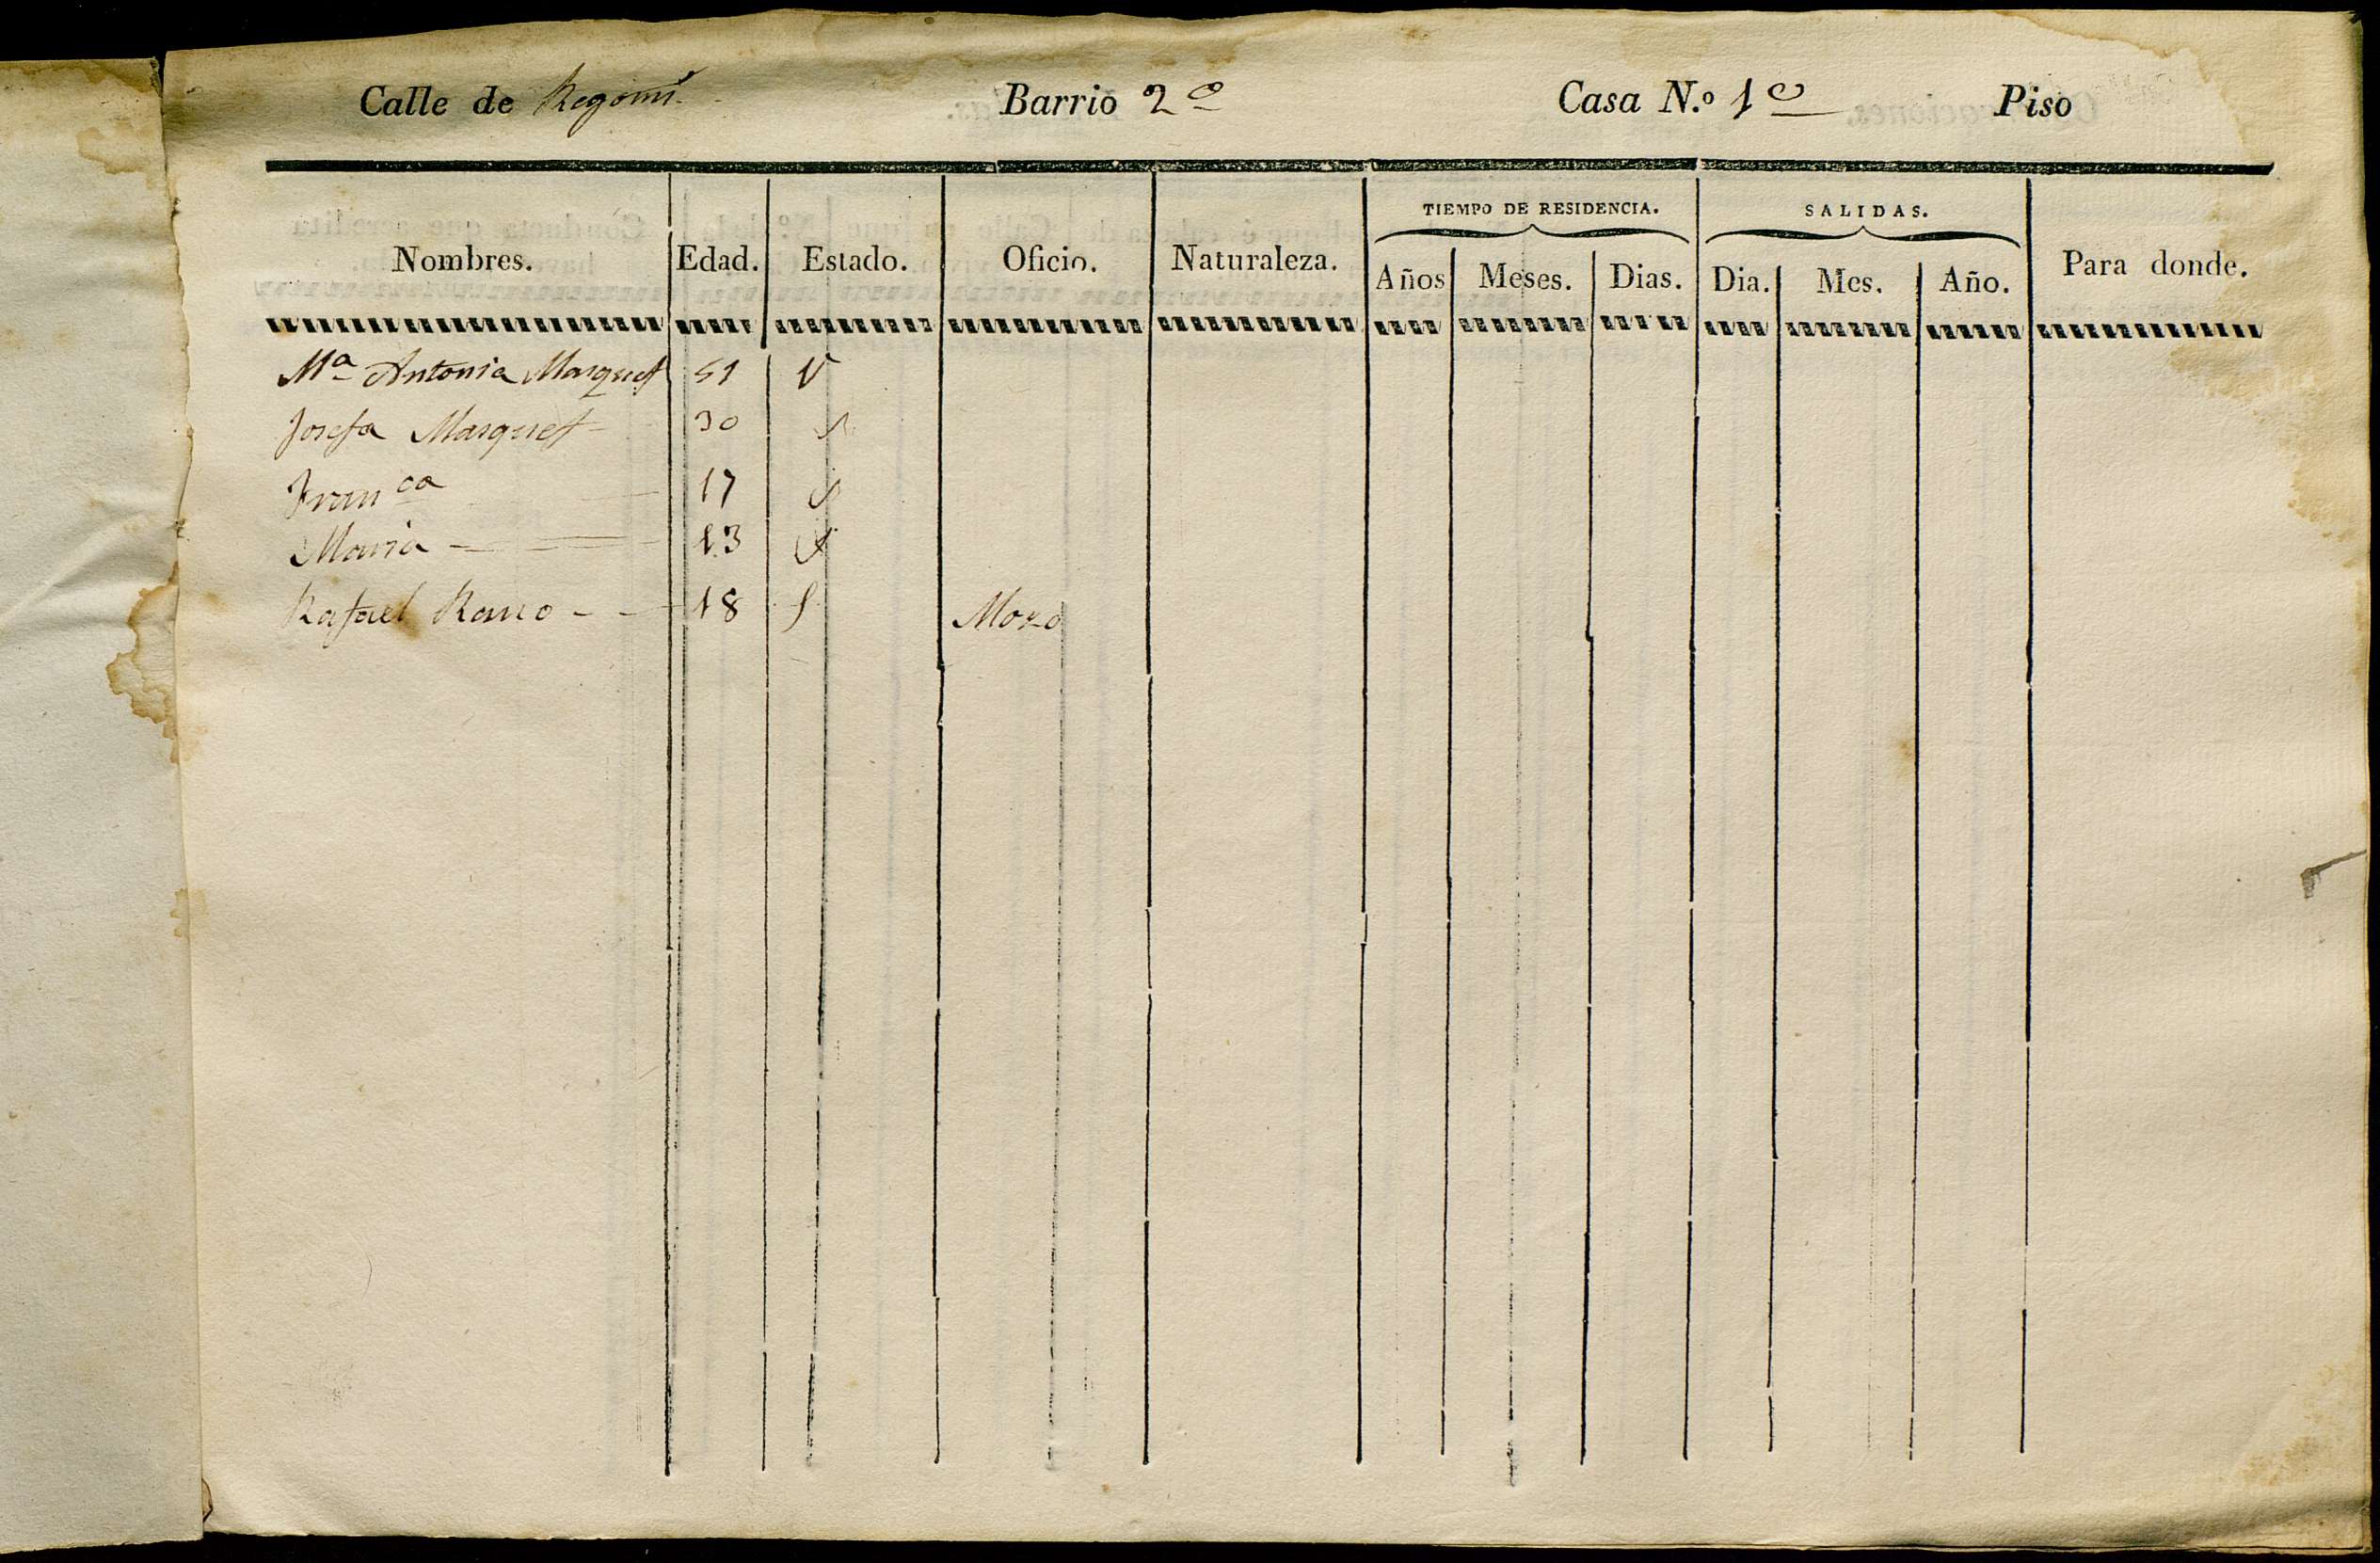 Calle de Regomi Barrio 2º Casa N.º 1º Piso
TIEMPO DE RESIDENCIA. SALIDAS.
Nombres. Edad. Estado. Oficio. Naturaleza. Años Meses. Dias. Dia. Mes. Año. Para donde.
Mª Antonia Marques 51 V
Josefa Marques 30 S
Franca 17 S
Maria 13 S
Rafael 18 S Mozo